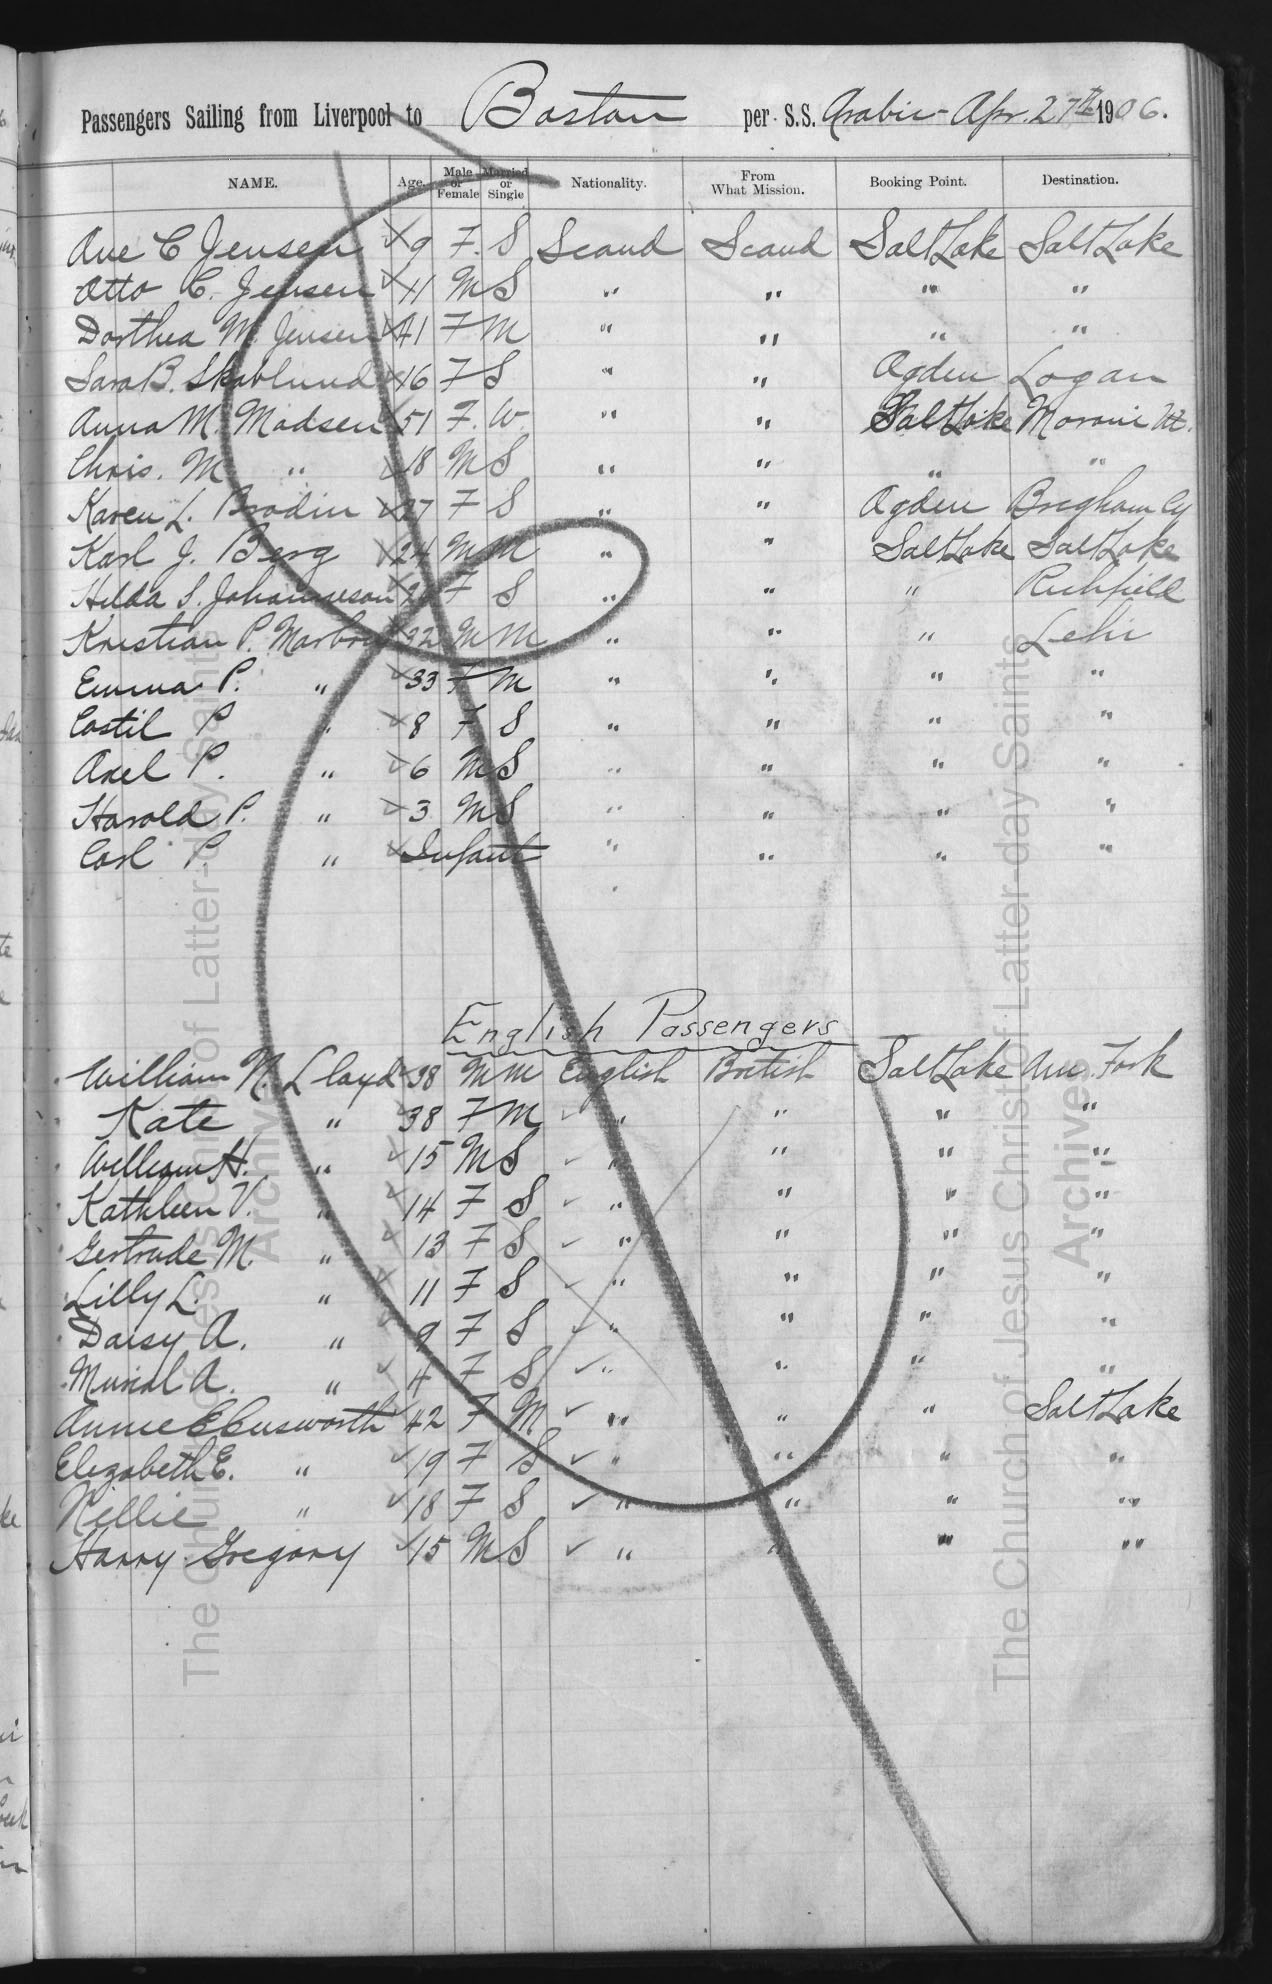 Passengers Sailing from Liverpool to Boston per S.S. Arabic - Apr. 27th 1906.
NAME. Age. Male or Female Married or Single Nationality. From What Mission. Booking Point. Destination.
Ane C Jensen 9 F. S Scand Scand Salt Lake Salt Lake
Otto C. Jensen 11 M S " " " "
Dorthea M. Jensen 41 F M " " " "
Sara B. Skoblund 16 F S " " Ogden Logan
Anna M. Madsen 51 F. W. " " Salt Lake Moroni Ut.
Chris. M " 18 M S " " " "
Karen L. Brodin 27 F S " " Ogden Brigham Cy
Karl J. Berg 24 M M " " Salt Lake Salt Lake
Hilda S. Johanneson F S " " " Richfield
Kristian P. 32 M M " " " Lehi
Emma P. " 33 F M " " " "
Costil P " 8 F S " " " "
Axel P. " 6 M S " " " "
Harold P. " 3 M S " " " "
Carl P. " Infant " " " "
English Passengers
William N. Lloyd 38 M M English British Salt Lake Am. Fork
Kate " 38 F M " " " "
William H. " 15 M S " " " "
Kathleen V. " 14 F S " " " "
Gertrude M. " 13 F S " " " "
Lilly L. " 11 F S " " " "
Daisy A. " 9 F S " " " "
Murial A. " 4 F S " " " "
Annie Ebensworth 42 F M " " " Salt Lake
Elizabeth E. " 19 F S " " " "
Nellie " 18 F S " " " "
Harry Gregory 15 M S " " " "
The Church of Jesus Christ of Latter-day Saints
Archives
The Church of Jesus Christ of Latter-day Saints
Archives